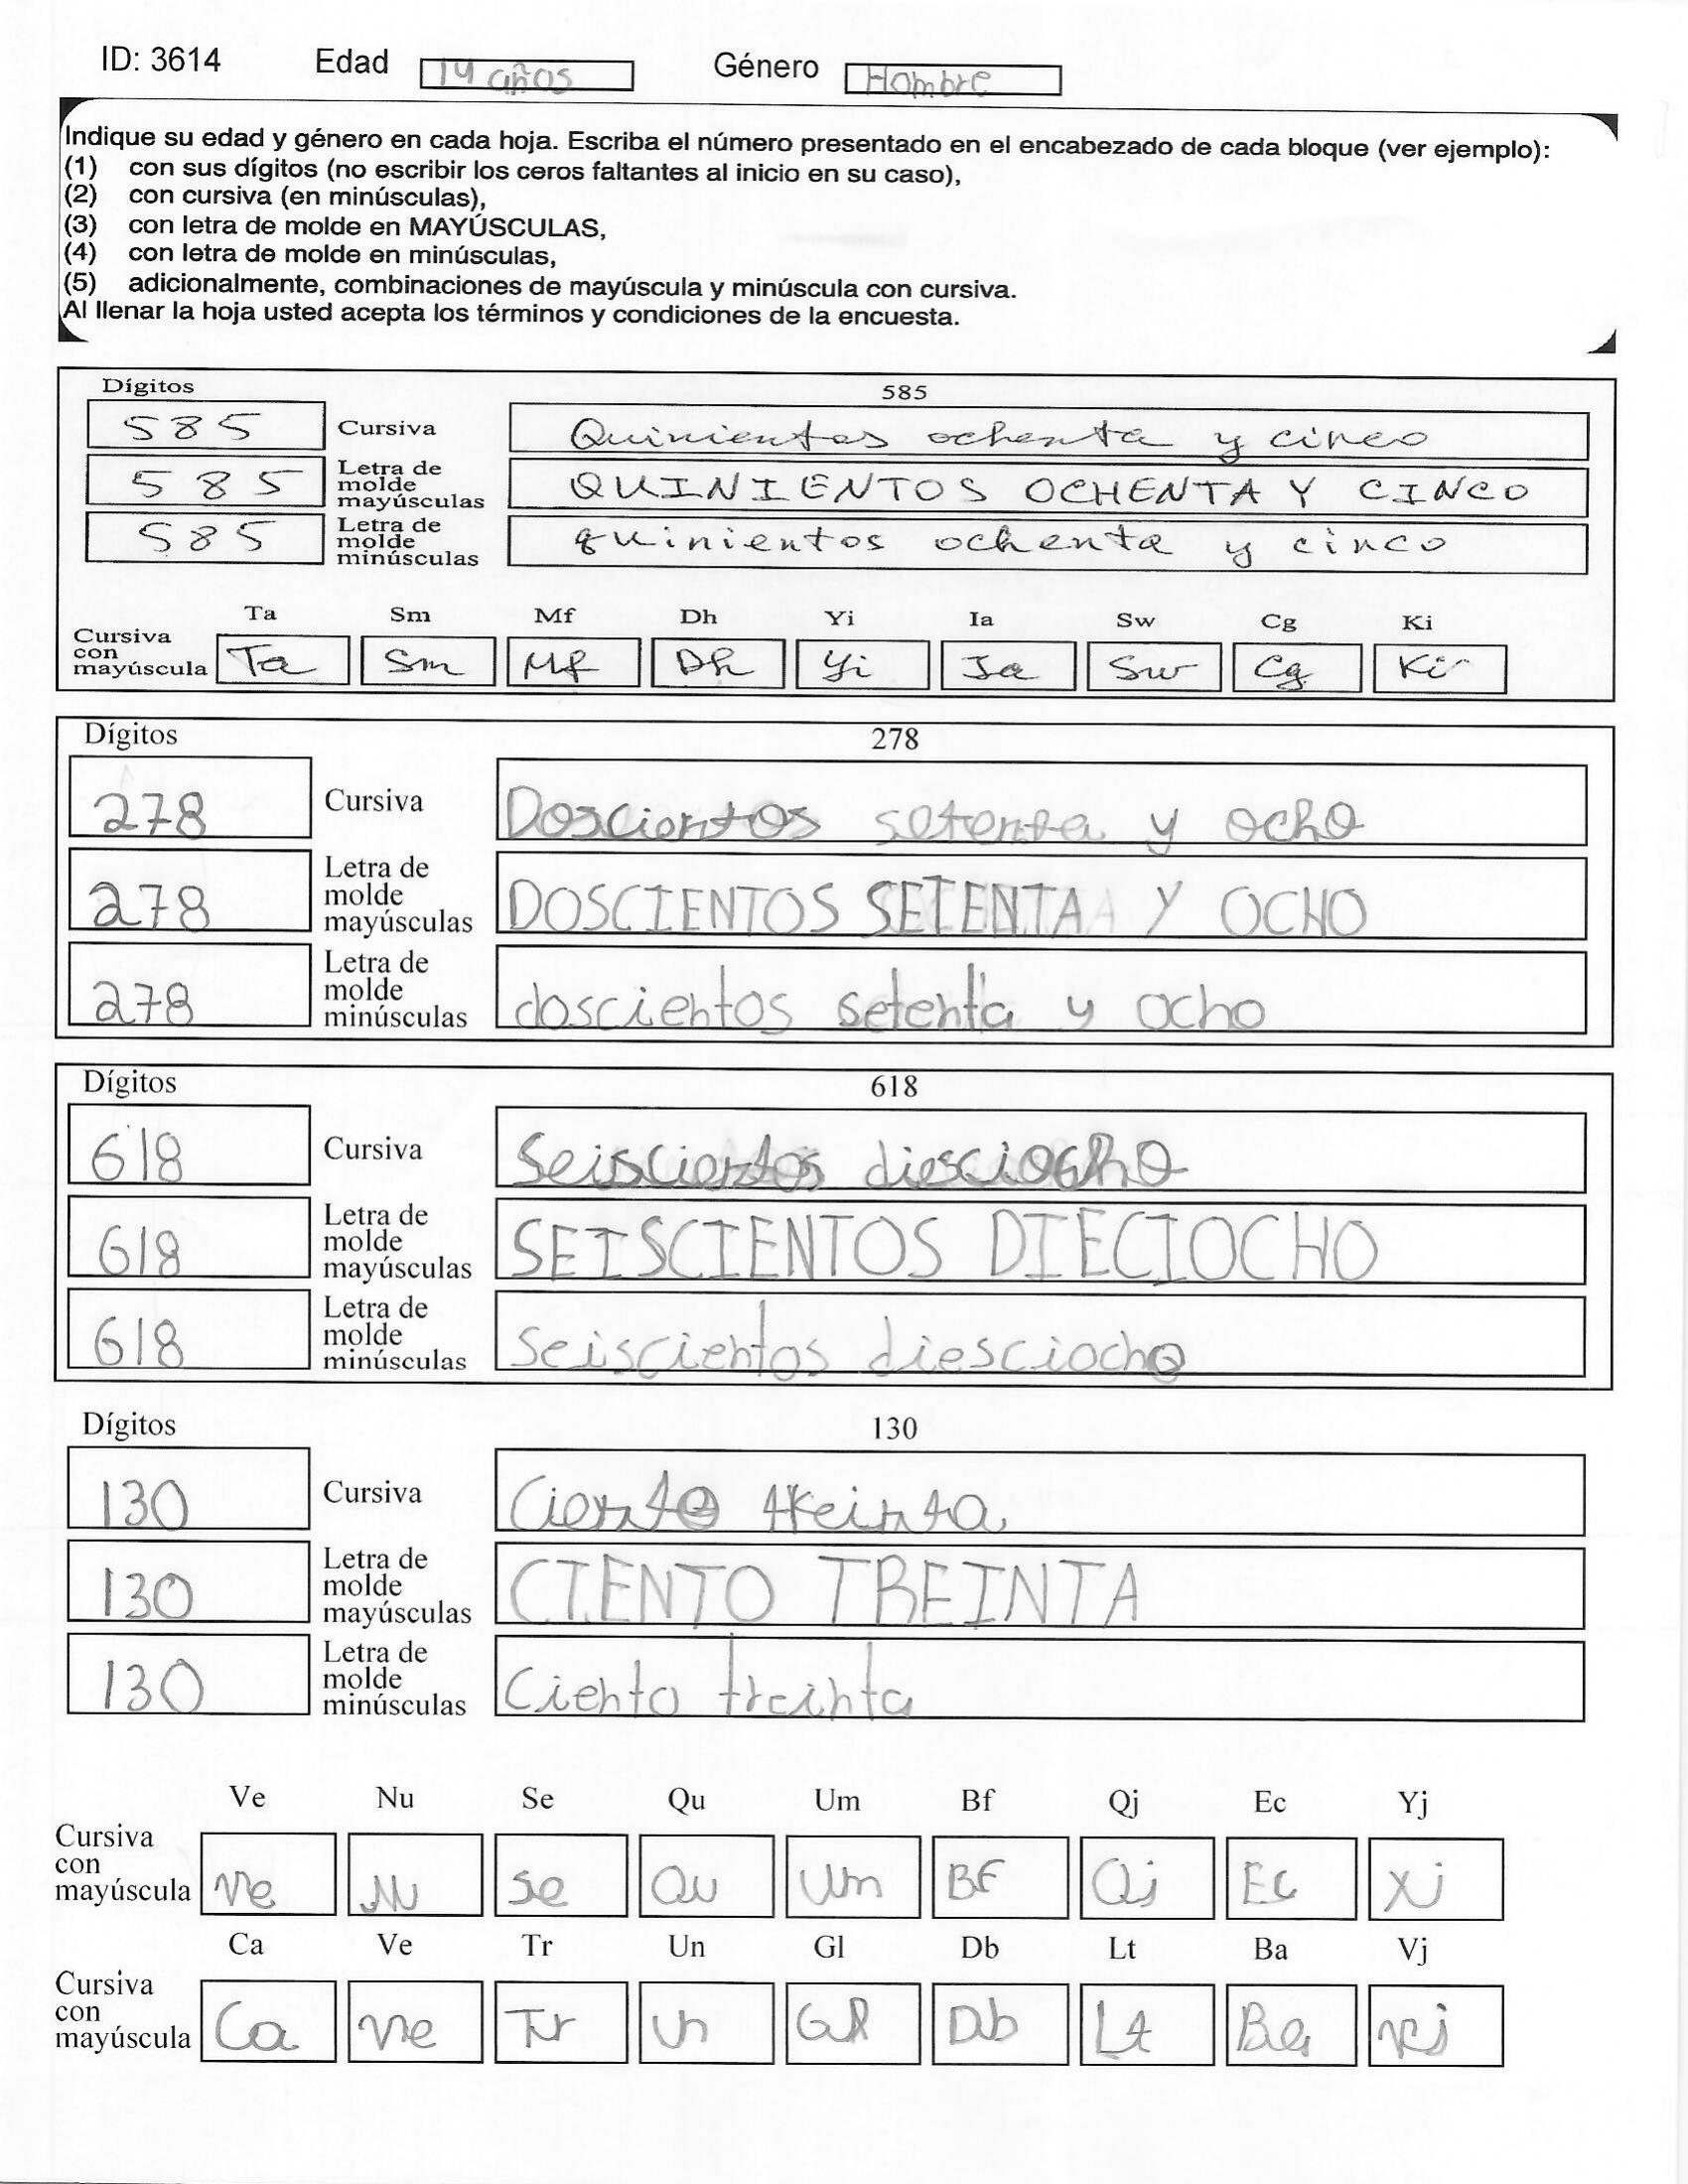 ID: 3614 Edad 14 años Género Hombre
Indique su edad y género en cada hoja. Escriba el número presentado en el encabezado de cada bloque (ver ejemplo):
(1) con sus dígitos (no escribir los ceros faltantes al inicio en su caso),
(2) con cursiva (en minúsculas),
(3) con letra de molde en MAYÚSCULAS,
(4) con letra de molde en minúsculas,
(5) adicionalmente, combinaciones de mayúscula y minúscula con cursiva.
Al llenar la hoja usted acepta los términos y condiciones de la encuesta.
Dígitos 585
585 Cursiva Quinientos ochenta y cinco
585 Letra de molde mayúsculas QUINIENTOS OCHENTA Y CINCO
585 Letra de molde minúsculas quinientos ochenta y cinco
Ta Sm Mf Dh Yi Ia Sw Cg Ki
Cursiva con mayúscula Ta Sm Mf Dh Yi Ia Sw Cg Ki
Dígitos 278
278 Cursiva Doscientos setenta y ocho
278 Letra de molde mayúsculas DOSCIENTOS SETENTA Y OCHO
278 Letra de molde minúsculas doscientos setenta y ocho
Dígitos 618
618 Cursiva Seiscientos diesciocho
618 Letra de molde mayúsculas SEISCIENTOS DIECIOCHO
618 Letra de molde minúsculas seiscientos diesciocho
Dígitos 130
130 Cursiva Ciento treinta
130 Letra de molde mayúsculas CIENTO TREINTA
130 Letra de molde minúsculas Ciento treinta
Ve Nu Se Qu Um Bf Qj Ec Yj
Cursiva con mayúscula Ve Nu Se Qu Um Bf Qj Ec Xj
Ca Ve Tr Un Gl Db Lt Ba Vj
Cursiva con mayúscula Ca Ve Tr Un Gl Db Lt Ba Vj